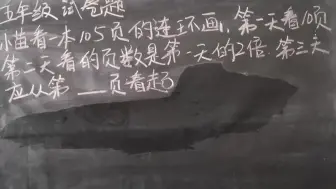 五年级试卷题
小苗看一本105页的连环画,第一天看10页
第二天看的页数是第一天的2倍.第三天
应从第___页看起?